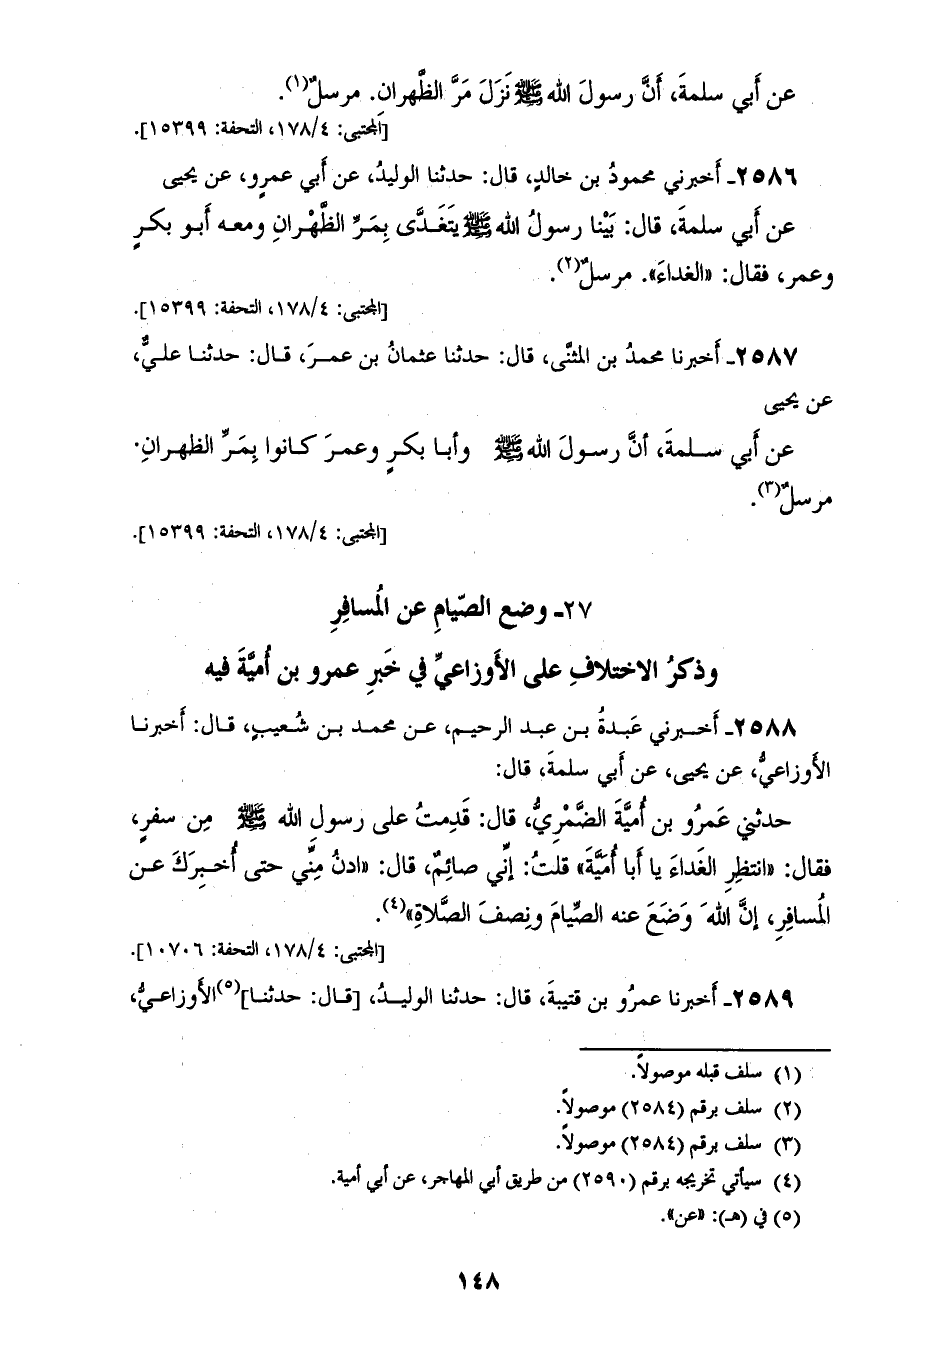 عن أَبي سلمةَ، أَنَّ رسولَ الله ﷺ نَزَلَ مَرَّ الظَّهرانِ. مرسلٌ(١).
[المجتبى: ١٧٨/٤، التحفة: ١٥٣٩٩].
٢٥٨٦ـ أَخبرني محمودُ بن خالدٍ، قال: حدثنا الوليدُ، عن أَبي عمرٍو، عن يحيى
عن أَبي سلمةَ، قال: بَيْنا رسولُ الله ﷺ يتَغَدَّى بِمَرِّ الظَّهْرانِ ومعه أَبو بكرٍ
وعمر، فقال: «الغداءَ». مرسلٌ(٢).
[المجتبى: ١٧٨/٤، التحفة: ١٥٣٩٩].
٢٥٨٧ـ أَخبرنا محمدُ بن المثنَّى، قال: حدثنا عثمانُ بن عمرَ، قال: حدثنا عليٌّ،
عن يحيى
عن أَبي سلمةَ، أنَّ رسولَ الله ﷺ وأَبا بكرٍ وعمرَ كانوا بِمَرِّ الظهرانِ.
مرسلٌ(٣).
[المجتبى: ١٧٨/٤، التحفة: ١٥٣٩٩].
٢٧ـ وضع الصّيامِ عن المُسافِرِ
وذكرُ الاختلافِ على الأَوزاعيِّ في خَبرِ عمرو بن أُميَّةَ فيه
٢٥٨٨ـ أَخبرني عَبدةُ بن عبد الرحيم، عن محمد بن شُعيبٍ، قال: أَخبرنا
الأَوزاعيُّ، عن يحيى، عن أَبي سلمةَ، قال:
حدثني عَمرُو بن أُميَّةَ الضَّمْريُّ، قال: قَدِمتُ على رسولِ الله ﷺ مِن سفرٍ،
فقال: «انتظِرِ الغَداءَ يا أَبا أُميَّةَ» قلتُ: إِنِّي صائمٌ، قال: «ادنُ مِنِّي حتى أُخبِرَكَ عن
المُسافِرِ، إِنَّ اللهَ وَضَعَ عنه الصِّيامَ ونِصفَ الصَّلاةِ»(٤).
[المجتبى: ١٧٨/٤، التحفة: ١٠٧٠٦].
٢٥٨٩ـ أَخبرنا عمرُو بن قتيبةَ، قال: حدثنا الوليدُ، [قال: حدثنا](٥) الأَوزاعيُّ،
(١) سلف قبله موصولاً.
(٢) سلف برقم (٢٥٨٤) موصولاً.
(٣) سلف برقم (٢٥٨٤) موصولاً.
(٤) سيأتي تخريجه برقم (٢٥٩٠) من طريق أبي المهاجر، عن أبي أمية.
(٥) في (هـ): «عن».
١٤٨